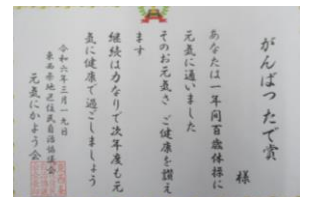 がんばったで賞
様
あなたは一年間百歳体操に
元気に通いました
そのお元気さ、ご健康を讃え
ます
継続は力なりで次年度も元
気に健康で過ごしましょう
令和六年三月一九日
東西条地区住民自治協議会
元気にかよう会